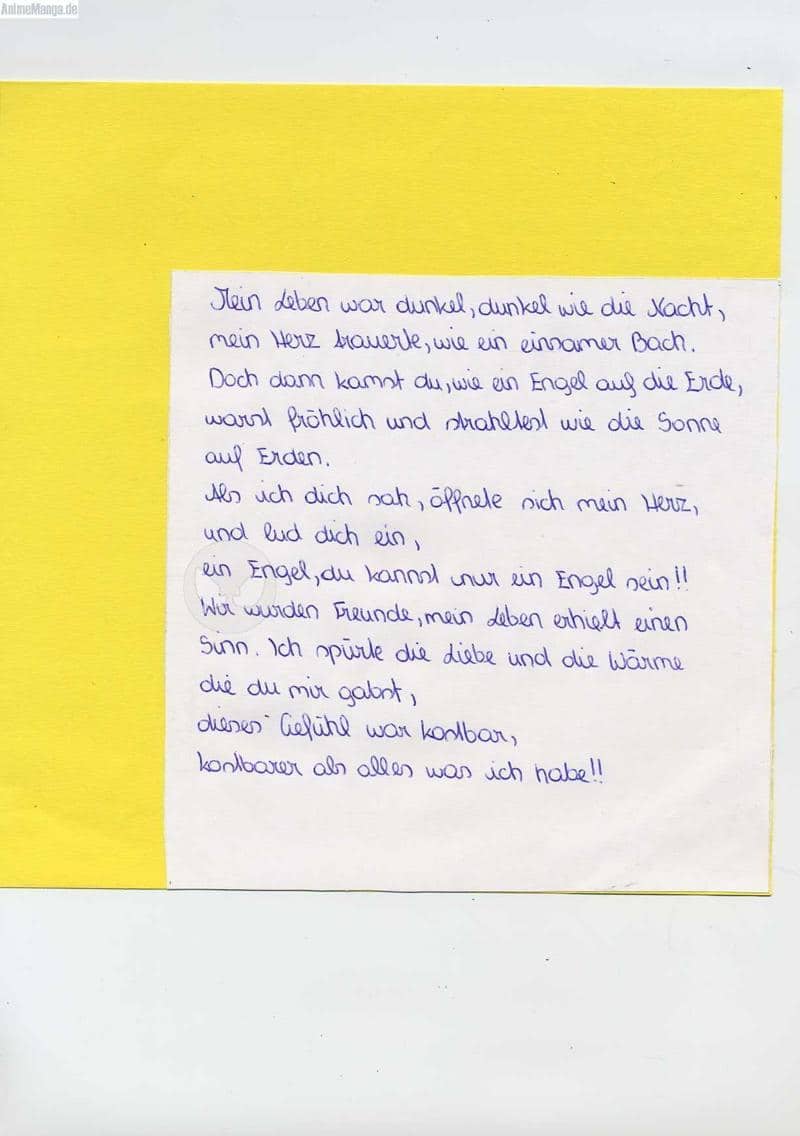 AnimeManga.de
Mein Leben war dunkel, dunkel wie die Nacht,
mein Herz trauerte, wie ein einsamer Bach.
Doch dann kamst du, wie ein Engel auf die Erde,
warst fröhlich und strahltest wie die Sonne
auf Erden.
Als ich dich sah, öffnete sich mein Herz,
und lud dich ein,
ein Engel, du kannst nur ein Engel sein!!
Wir wurden Freunde, mein Leben erhielt einen
Sinn. Ich spürte die Liebe und die Wärme
die du mir gabst,
dieses Gefühl war kostbar,
kostbarer als alles was ich habe!!